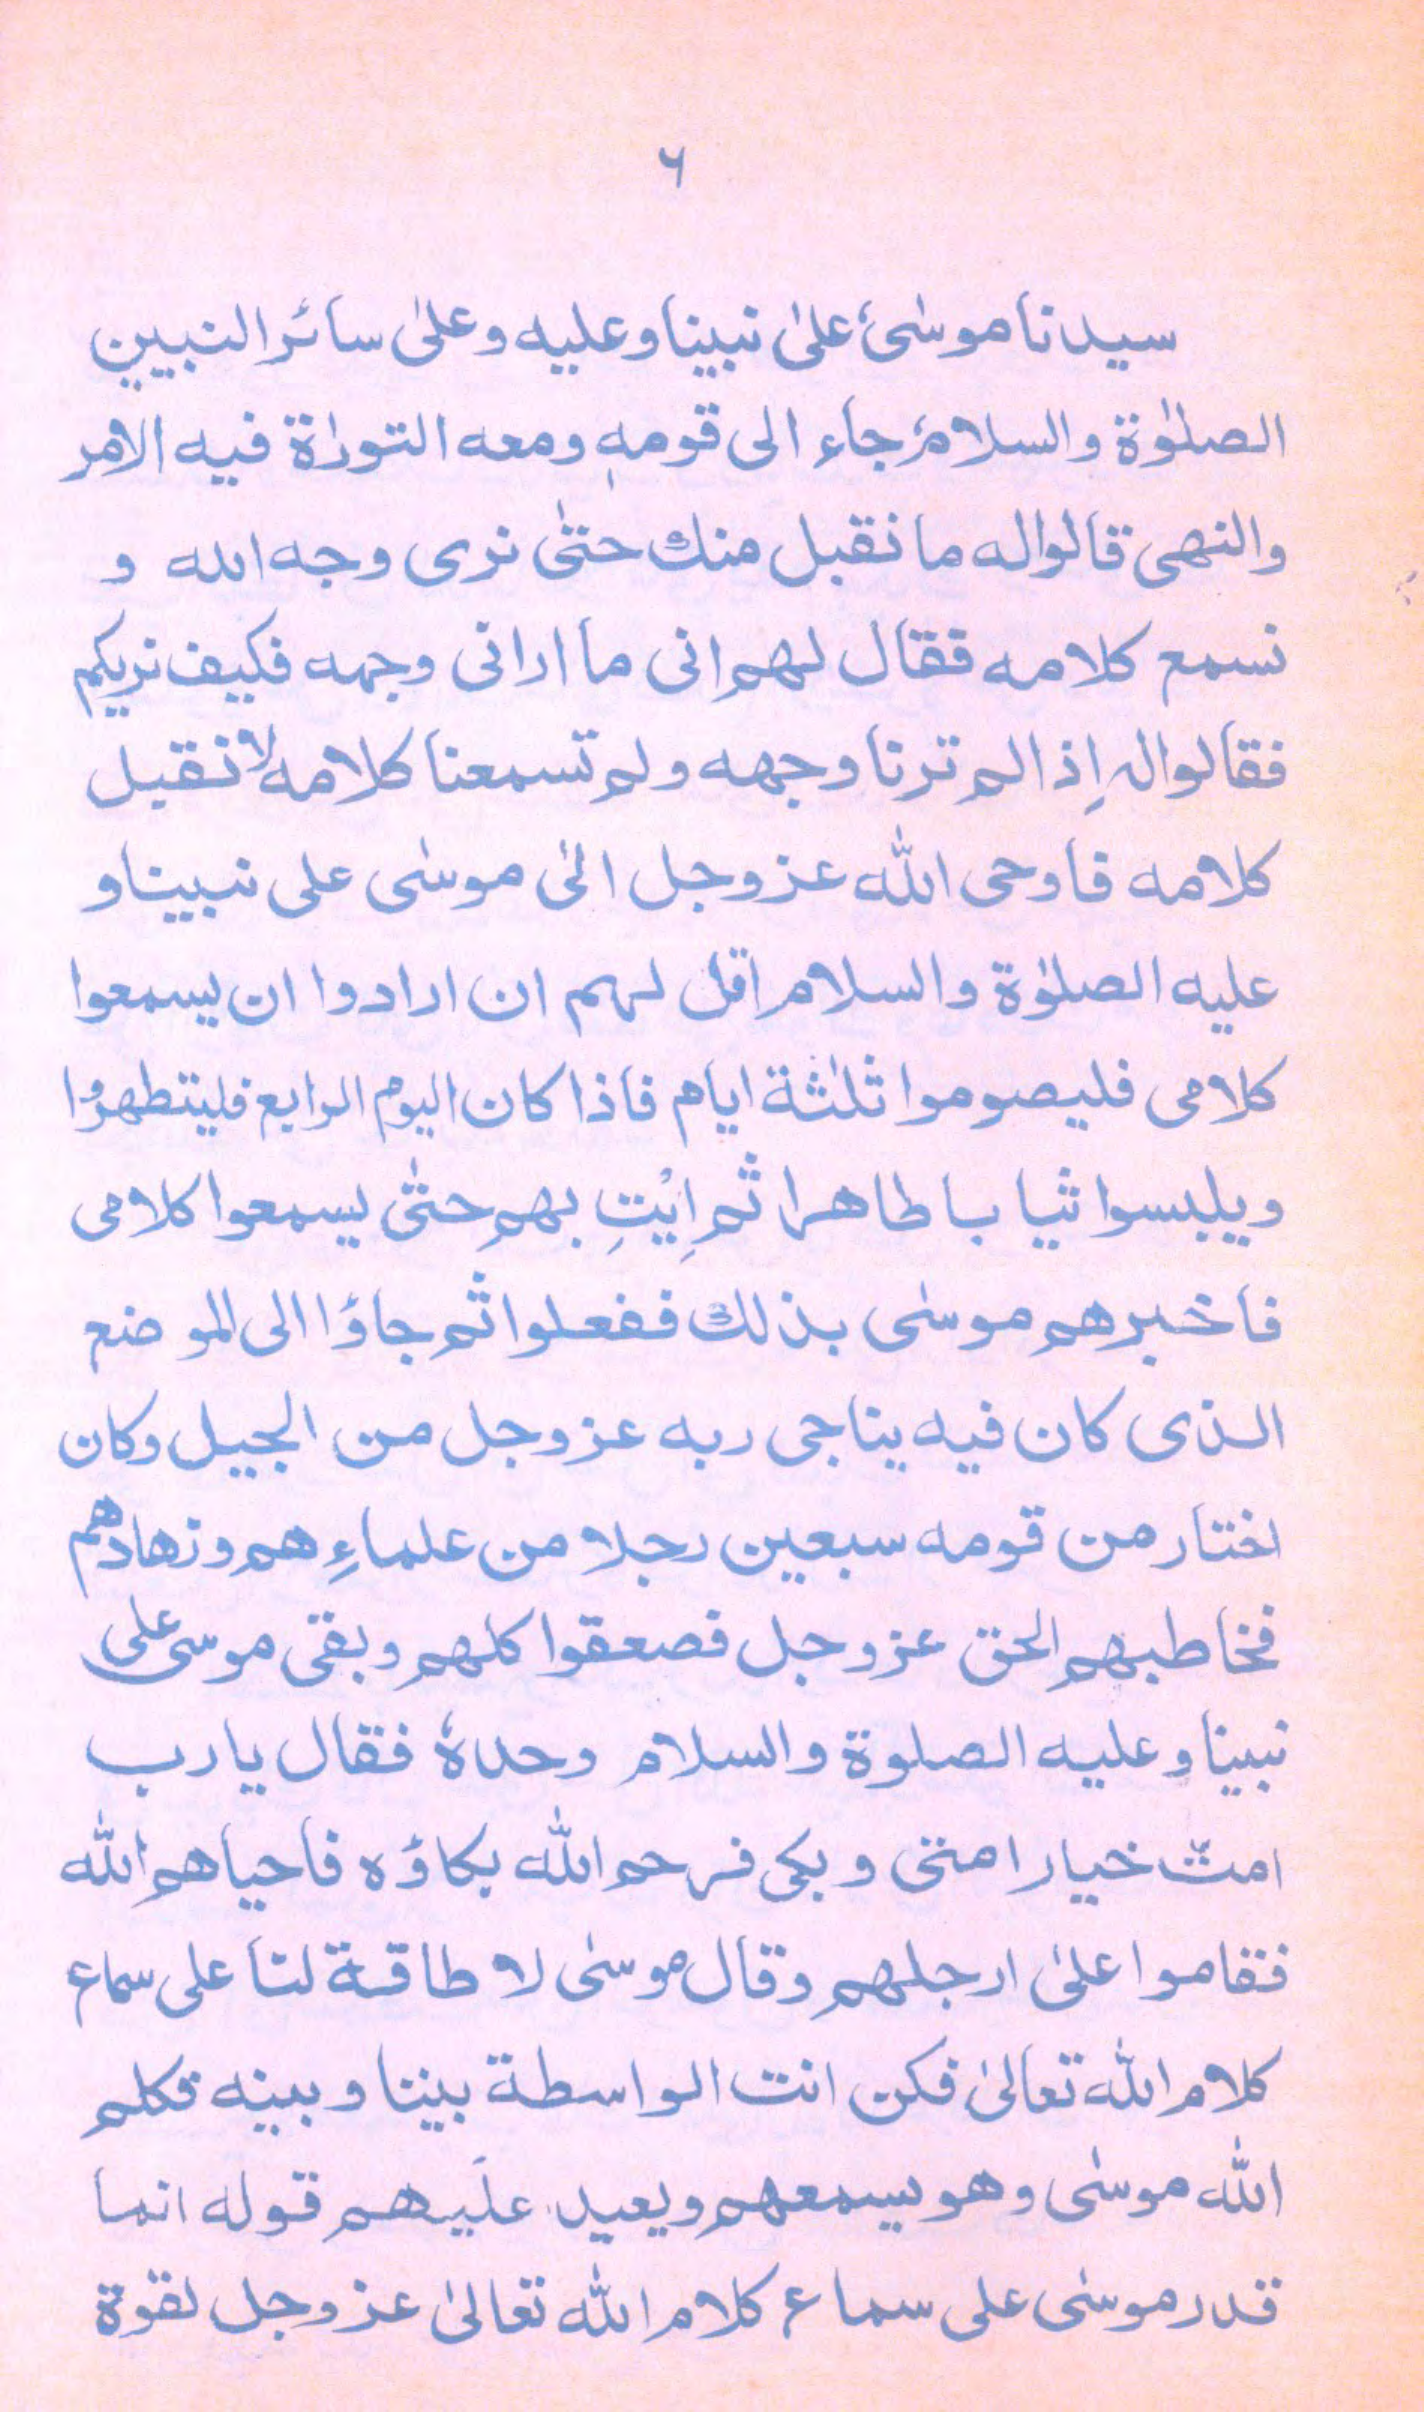 ۶
سیدنا موسٰیٔ علیٰ نبینا وعلیه وعلیٰ سائر النبیین
الصلوٰة والسلامؑ جاء الی قومهٖ ومعه التورٰاة فیه الامر
والنهی قالوا له ما نقبل منك حتّٰی نری وجه الله و
نسمع کلامه فقال لهم انی ما ارانی وجهه فکیف نریکم
فقالوا له اِذا لم ترنا وجهه ولم تسمعنا کلامه لا نقبل
کلامه فاوحی اللّٰه عز وجل الیٰ موسٰی علی نبینا و
علیه الصلوٰة والسلام اقل لهم ان ارادوا ان یسمعوا
کلامی فلیصوموا ثلٰثة ایام فاذا کان الیوم الرابع فلیتطهرُوا
ویلبسوا ثیابا طاهرا ثم اِیْتِ بهم حتّٰی یسمعوا کلامی
فاخبرهم موسٰی بذلك ففعلوا ثم جاؤا الی الموضع
الذی کان فیه یناجی ربه عز وجل من الجبیل وکان
اختار من قومه سبعین رجلا من علماءِهم وزهادهم
فخاطبهم الحق عز وجل فصعقوا کلهم وبقی موسی علی
نبینا وعلیه الصلوة والسلام وحدهٗ فقال یا رب
امتّ خیار امتی وبکی فرحم اللّٰه بکاؤه فاحیاهم اللّٰه
فقاموا علیٰ ارجلهم وقال موسٰی لا طاقة لنا علی سماع
کلام اللّٰه تعالیٰ فکن انت الواسطة بیننا وبینه فکلم
اللّٰه موسٰی وهو یسمعهم ویعید علَیهم قوله انما
قدر موسٰی علی سماع کلام اللّٰه تعالیٰ عز وجل لقوة